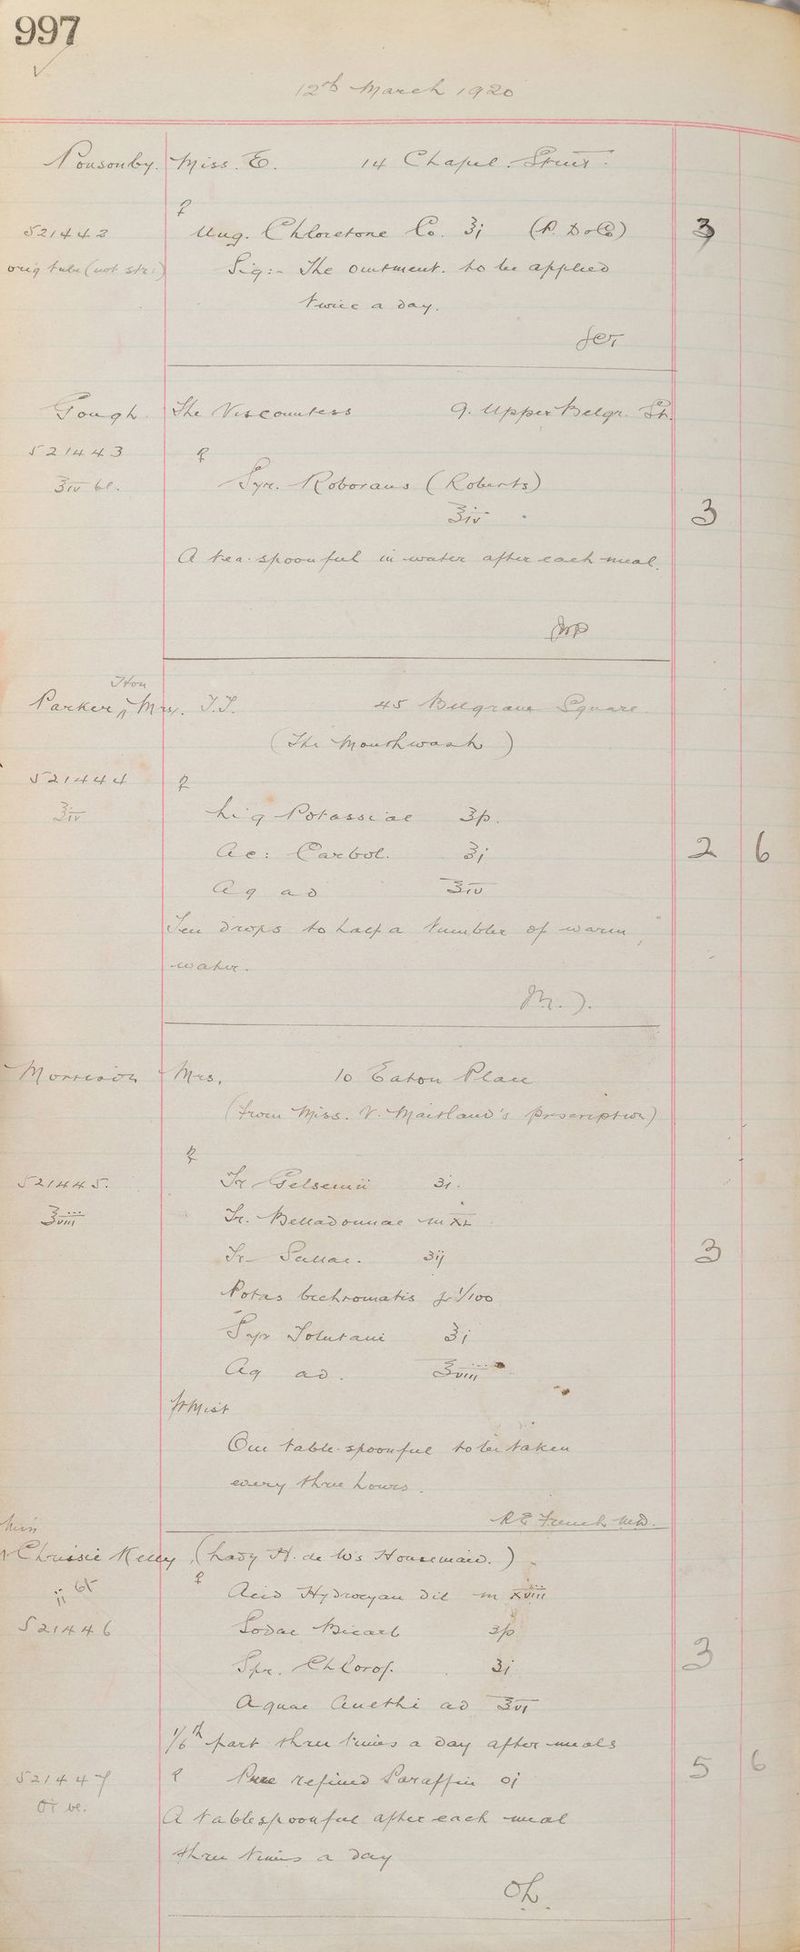 997
12th March 1920
Ponsonby. Miss. E. 14 Chapel. Street.
℞
521442 Ung. Chloretone Co. ʒj (P. D & Co) 3
orig tube (not ste:) Sig:- The ointment. to be applied
twice a day.
Gough. The Viscountess 9. Upper Belgr. St.
521443 ℞
℥iv bl. Syr. Roborans (Roberts)
℥iv 3
A tea-spoonful in water after each meal.
Hon
Parker, Mrs. T.T. 45 Belgrave Square
(The Mouthwash)
521444 ℞
℥iv Liq Potassiae ʒp.
Ac: Carbol. ʒj 2 6
Aq ad ℥iv
Ten drops to half a tumbler of warm
water.
Morrison Mrs. 10 Eaton Place
(from Miss. V. Maitland's prescription)
℞
521445. Tr Gelsemii ʒi.
℥viii Tr. Belladonnae m XL
Tr Scillae. ʒij 3
Potas bichromatis gr 1/100
Syr Tolutani ℥j
Aq ad. ℥viii
ft Mist
One table-spoonful to be taken
every three hours.
R E French M.D.
Miss
Chrissie Kelly (Lady H. de W's Housemaid.)
℞ Acid Hydrocyan Dil m xviii
521446 Sodae Bicarb ʒp
Spr. Chlorof. ʒj 3
Aquae Anethi ad ℥vi
1/6th part three times a day after meals
521447 ℞ Pure refined Paraffin Oj 5 6
Oi bl. A tablespoonful after each meal
three times a day